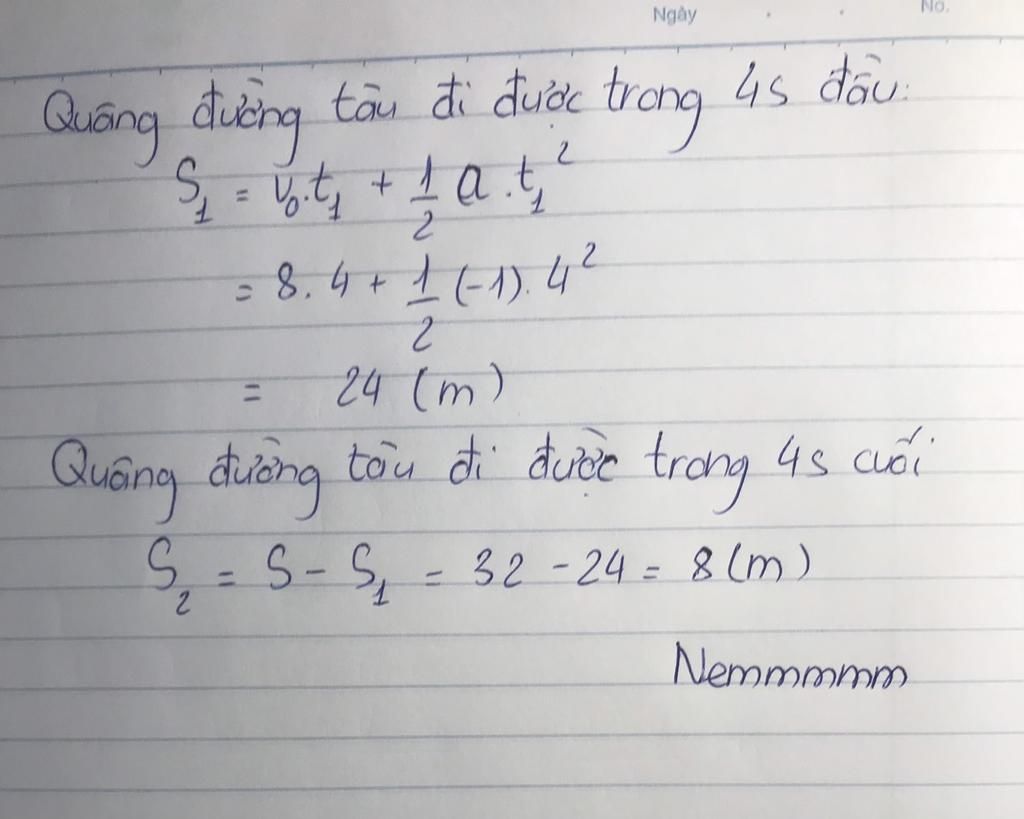 Ngày No.
Quãng đường tàu đi được trong 4s đầu:
S₁ = v₀.t₁ + 1/2 a.t₁²
= 8.4 + 1/2 (-1).4²
= 24 (m)
Quãng đường tàu đi được trong 4s cuối
S₂ = S - S₁ = 32 - 24 = 8 (m)
Nemmmmm